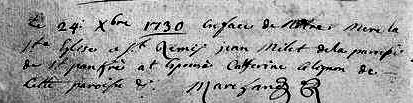 Le 24e Xbre 1730 En face de Notre Mere la
Ste Eglise a St Remij jean Milet de la paroisse
de St panfré at Epousé Catterine Colignon de
Cette paroisse
Marchand